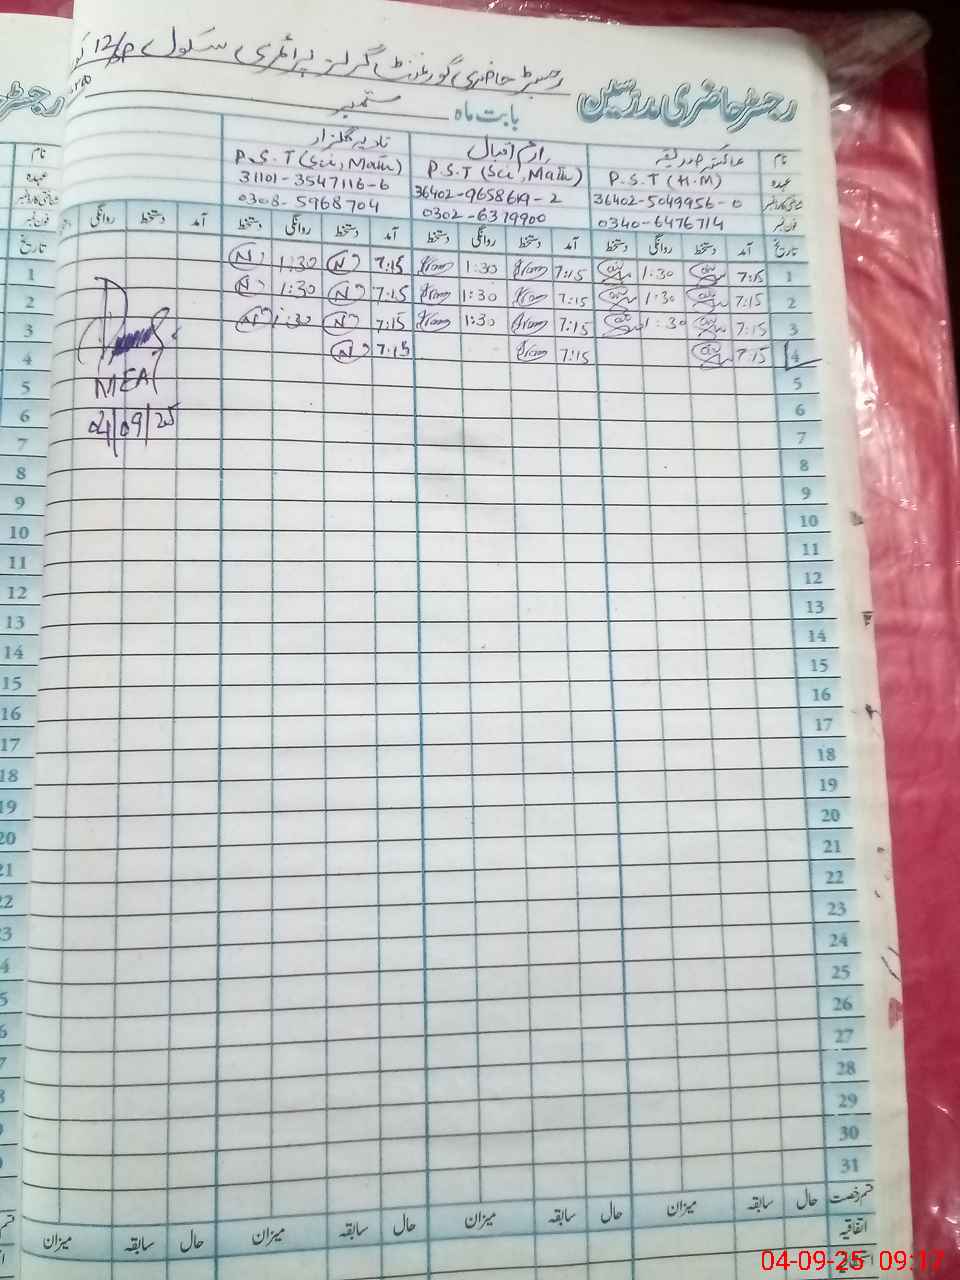 رجسٹر حاضری مدرسین رجسٹر حاضری گورنمنٹ گرلز پرائمری سکول 12/P
بابت ماہ ستمبر
نام عائشہ صدیقہ ارم اقبال نادیہ گلزار
عہدہ P.S.T (H.M) P.S.T (Sci, Math) P.S.T (Sci, Math)
شناختی کارڈ نمبر 36402-5049956-0 36402-9658619-2 31101-3547116-6
فون نمبر 0340-6476714 0302-6379900 0308-5968704
تاریخ آمد دستخط روانگی دستخط آمد دستخط روانگی دستخط آمد دستخط روانگی دستخط آمد دستخط روانگی
1 7:15 1:30 7:15 Iram 1:30 Iram 7:15 N 1:30 N
2 7:15 1:30 7:15 Iram 1:30 Iram 7:15 N 1:30 N
3 7:15 1:30 7:15 Iram 1:30 Iram 7:15 N 1:30 N
4 7:15 7:15 Iram 7:15 N
MEA
04/09/25
5
6
7
8
9
10
11
12
13
14
15
16
17
18
19
20
21
22
23
24
25
26
27
28
29
30
31
قسم رخصت حال سابقہ میزان حال سابقہ میزان حال سابقہ میزان حال سابقہ میزان
اتفاقیہ
04-09-25 09:17